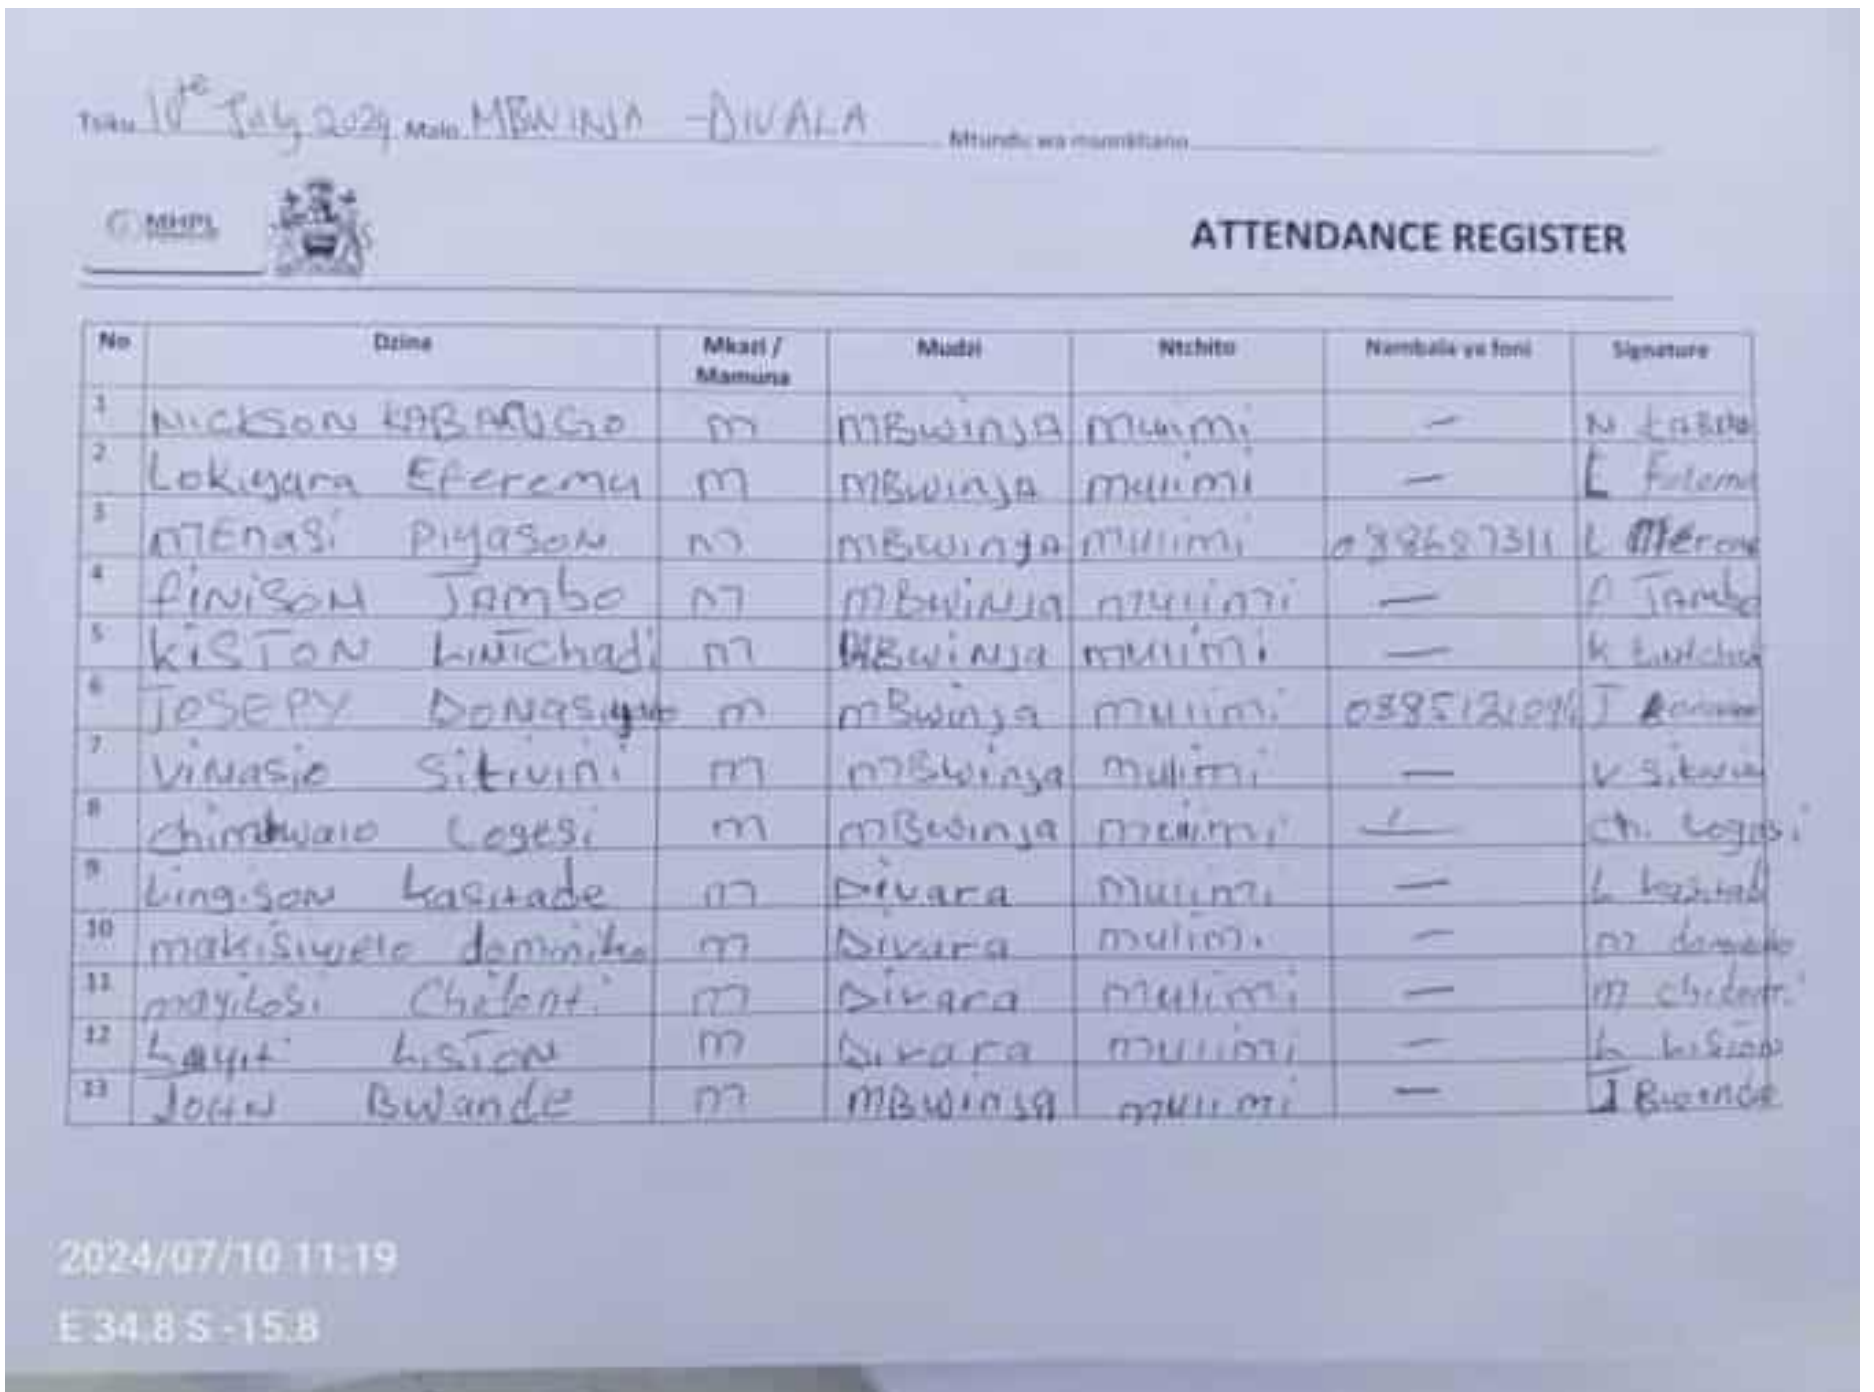 Tsiku 10te July 2024 Malo MBWINJA - DIVALA Mtundu wa msonkhano
MHPL
ATTENDANCE REGISTER
No Dzina Mkazi / Mamuna Mudzi Ntchito Nambala ya foni Signature
1 NICKSON KABANGO m MBwinJA mulimi - N
2 Lokiyara Eferemu m MBwinJA mulimi - E
3 mEnasi Piyason m MBwinJA mulimi 088687311 L
4 fiNiSON JAmbo m mBwiNJa mulimi - F JAmbo
5 KiSTON LiNTchadi m MBwiNJa mulimi - K
6 JOSEPY DONASiyo m mBwinJa mulimi J
7 ViNasio Sitivini m mBwinJa mulimi - V
8 chimkwaio Logesi m mBwinJa mulimi - ch. Logesi
9 Ling.SON kasitade m Divara mulimi - L
10 makisiwelo dominiko m Divara mulimi - m
11 mayilosi m Divara mulimi - m
12 Layit LiSTON m Divara mulimi - L LiSTON
13 JOHN Bwande m MBwinJa mulimi - J Bwande
2024/07/10 11:19
E 34.8 S -15.8